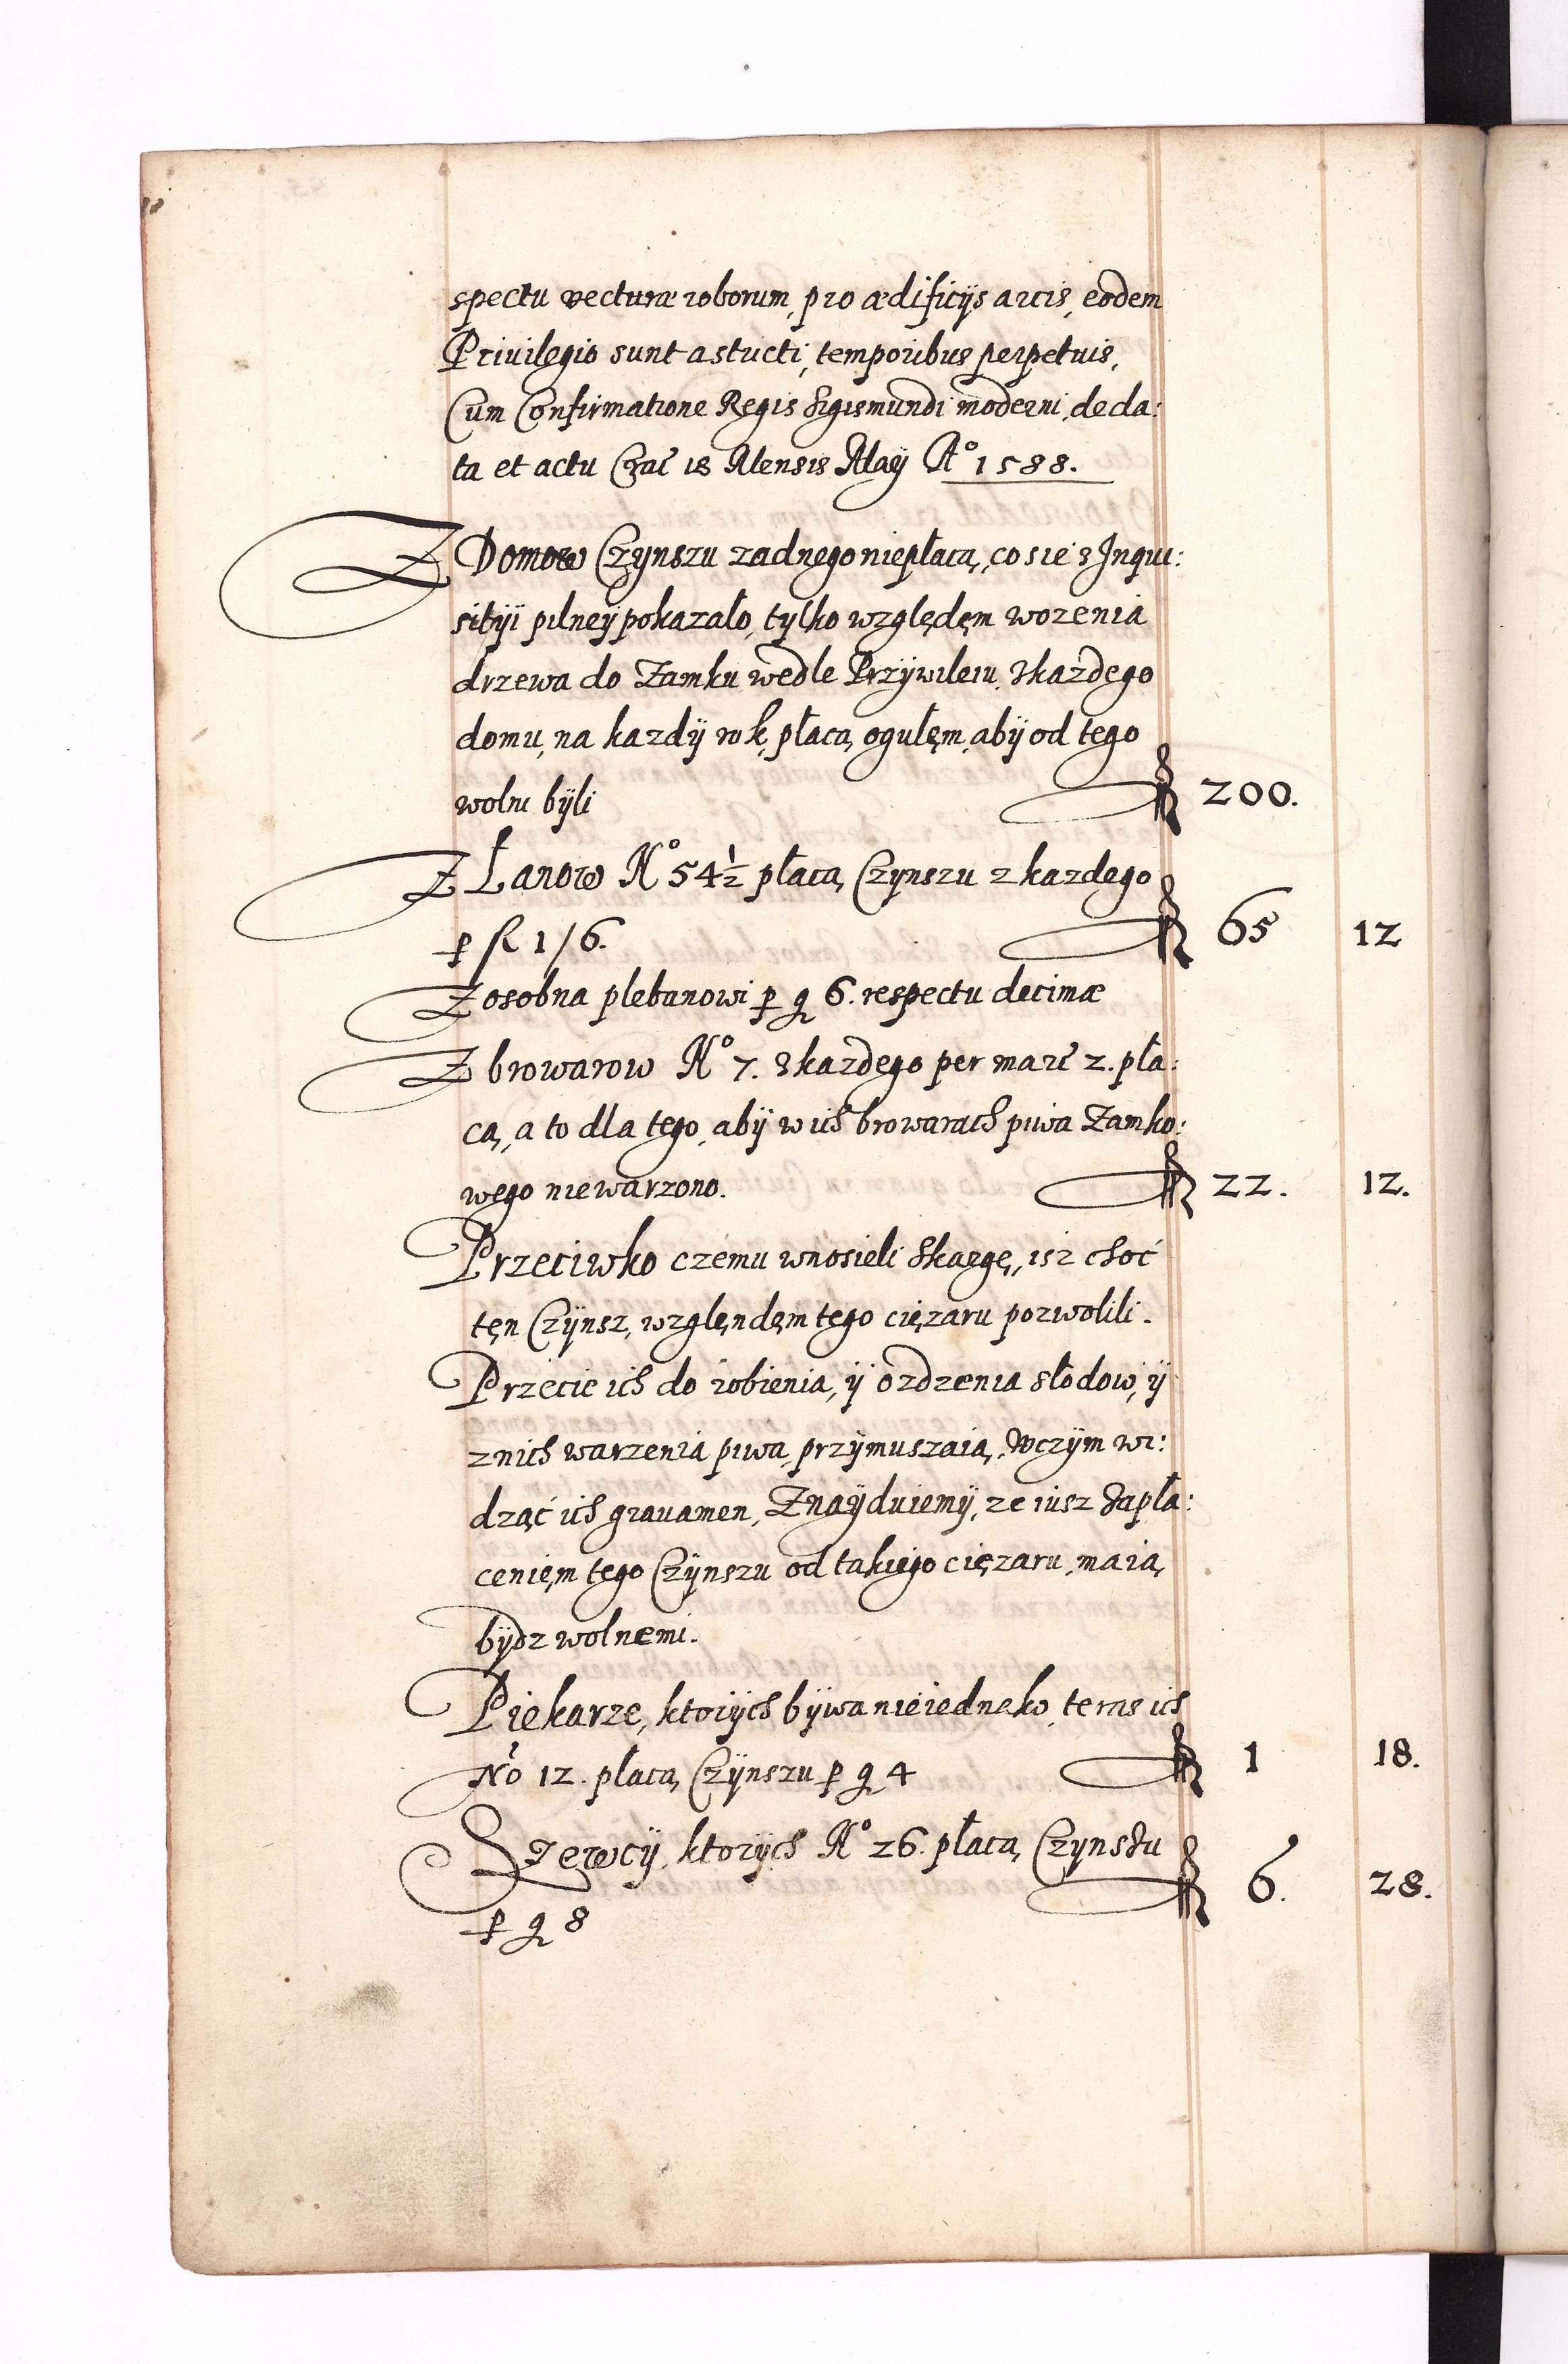 spectu vecturæ roborum, pro ædificÿs arcis, eodem
Privilegio sunt astricti, temporibus perpetuis,
Cum Confirmatione Regis Sigismundi moderni, de da:
ta et actu Crac̃ 18 Mensis Maÿ Aº 1588.
Z Domow Czynszu zadnego niepłacą, co sie z Inqui:
sitÿi pilneÿ pokazało, tylko względęm wozenia
drzewa do Zamku wedle Przÿwileiu, z kazdego
domu, na kazdÿ rok, płacą ogułęm, abÿ od tego
wolni bÿli fl 200.
Z Łanow Nº 54 1/2 płacą Czynszu z kazdego
p fl 1/6. fl 65 12
Z osobna plebanowi p g 6. respectu decimæ
Z browarow Nº 7. z kazdego per marc̃ 2. pła:
cą, a to dla tego, abÿ w ich browarach piwa Zamko:
wego niewarzono. fl 22. 12.
Przeciwko czemu wnosieli Skargę, isz choć
tęn Czÿnsz, wzglęndęm tego cięzaru pozwolili.
Przecie ich do robienia, ÿ ozdzenia słodow, ÿ
znich warzenia piwa, przÿmuszaią, Wczÿm wi:
dząć ich gravamen, Znaÿduiemÿ, ze iusz Zapła:
cenięm tego Czÿnszu od takiego cięzaru, maią
bÿdz wolnemi.
Piekarze, ktorÿch bÿwa nieiednako, teras ich
Nrº 12. płacą Czÿnszu p g 4 fl 1 18.
Szewcÿ, ktorÿch Nº 26. płacą Czynszu
p g 8 fl 6. 28.